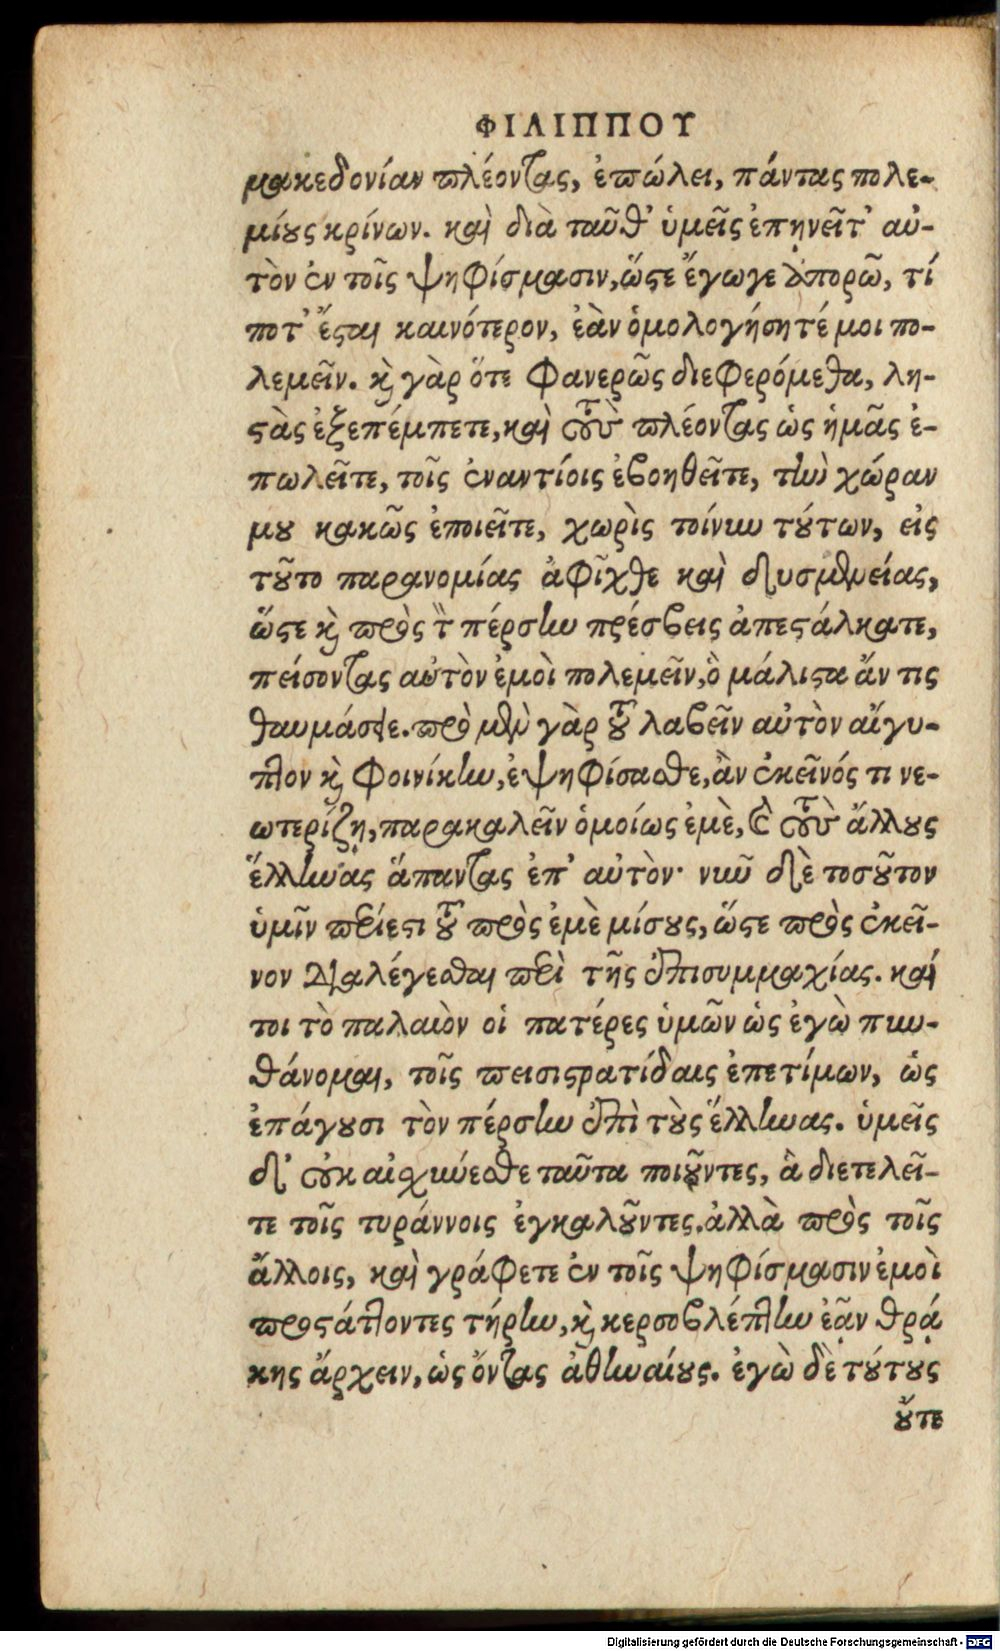 ΦΙΛΙΠΠΟΥ
μακεδονίαν πλέοντας, ἐπώλει, πάντας πολε-
μίους κρίνων. καὶ διὰ ταῦθ' ὑμεῖς ἐπῃνεῖτ' αὐ-
τὸν ἐν τοῖς ψηφίσμασιν, ὥστε ἔγωγε ἀπορῶ, τί
ποτ' ἔσται καινότερον, ἐὰν ὁμολογήσητέ μοι πο-
λεμεῖν. καὶ γὰρ ὅτε φανερῶς διεφερόμεθα, λη-
στὰς ἐξεπέμπετε, καὶ τοὺς πλέοντας ὡς ἡμᾶς ἐ-
πωλεῖτε, τοῖς ἐναντίοις ἐβοηθεῖτε, τὴν χώραν
μου κακῶς ἐποιεῖτε, χωρὶς τοίνυν τούτων, εἰς
τοῦτο παρανομίας ἀφῖχθε καὶ δυσμενείας,
ὥστε καὶ πρὸς τὸν πέρσην πρέσβεις ἀπεστάλκατε,
πείσοντας αὐτὸν ἐμοὶ πολεμεῖν, ὃ μάλιστα ἄν τις
θαυμάσειε. πρὸ μὲν γὰρ τοῦ λαβεῖν αὐτὸν αἴγυ-
πτον καὶ φοινίκην, ἐψηφίσασθε, ἂν ἐκεῖνός τι νε-
ωτερίζῃ, παρακαλεῖν ὁμοίως ἐμὲ, καὶ τοὺς ἄλλους
ἕλληνας ἅπαντας ἐπ' αὐτόν· νῦν δὲ τοσοῦτον
ὑμῖν περίεστι τοῦ πρὸς ἐμὲ μίσους, ὥστε πρὸς ἐκεῖ-
νον διαλέγεσθαι περὶ τῆς ἐπισυμμαχίας. καί
τοι τὸ παλαιὸν οἱ πατέρες ὑμῶν ὡς ἐγὼ πυν-
θάνομαι, τοῖς πεισιστρατίδαις ἐπετίμων, ὡς
ἐπάγουσι τὸν πέρσην ἐπὶ τοὺς ἕλληνας. ὑμεῖς
δ' οὐκ αἰσχύνεσθε ταῦτα ποιοῦντες, ἃ διετελεῖ-
τε τοῖς τυράννοις ἐγκαλοῦντες. ἀλλὰ πρὸς τοῖς
ἄλλοις, καὶ γράφετε ἐν τοῖς ψηφίσμασιν ἐμοὶ
προστάττοντες τήρην, καὶ κερσοβλέπτην ἐᾶν θρᾴ
κης ἄρχειν, ὡς ὄντας ἀθηναίους. ἐγὼ δὲ τούτους
οὔτε
Digitalisierung gefördert durch die Deutsche Forschungsgemeinschaft - DFG